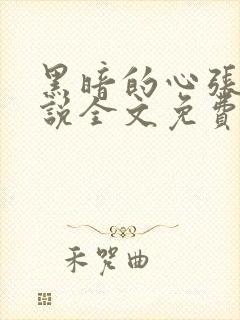 黑暗的心張
說全文免費
禾哭曲